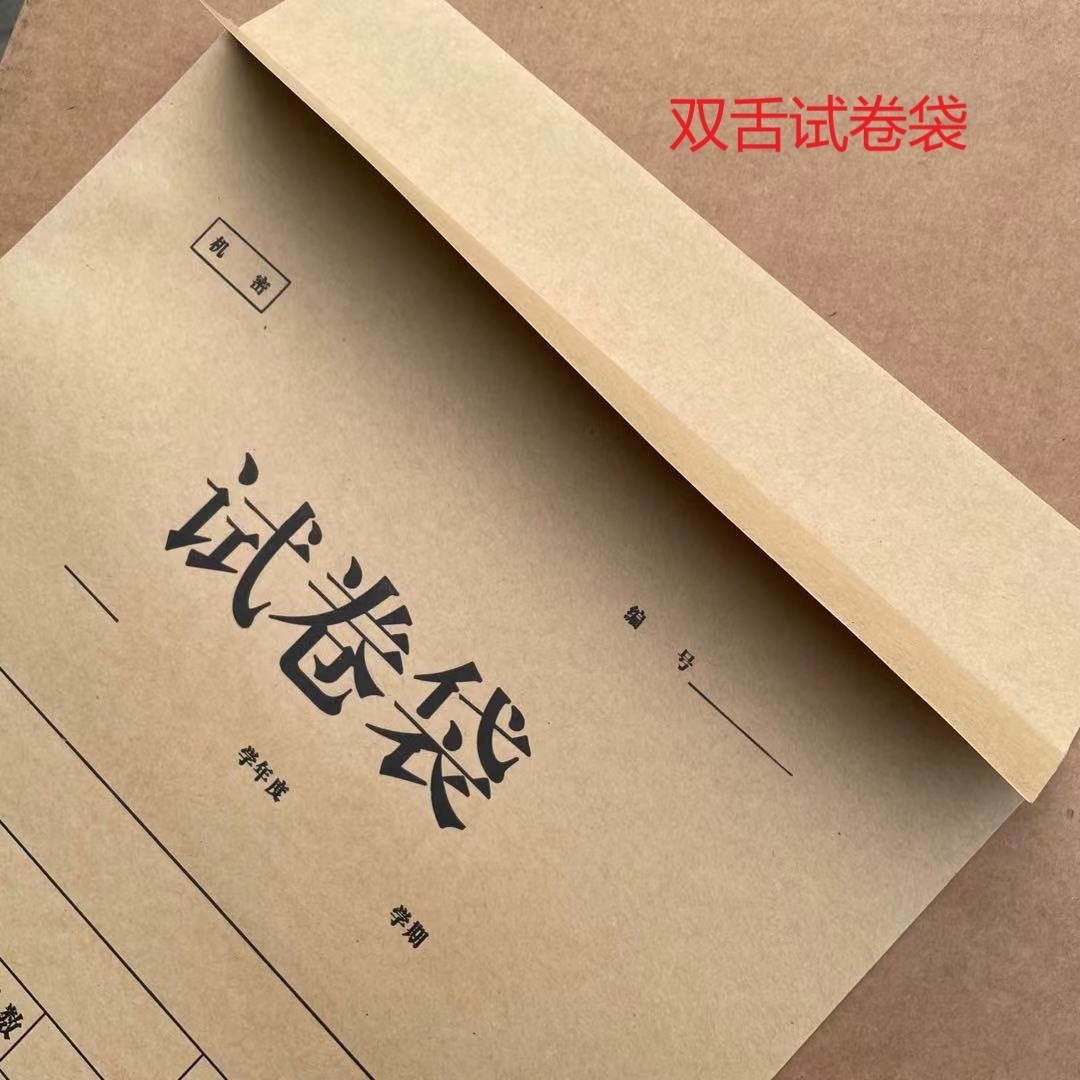 双舌试卷袋
机 密
编 号
试卷袋
学年度
学期
数